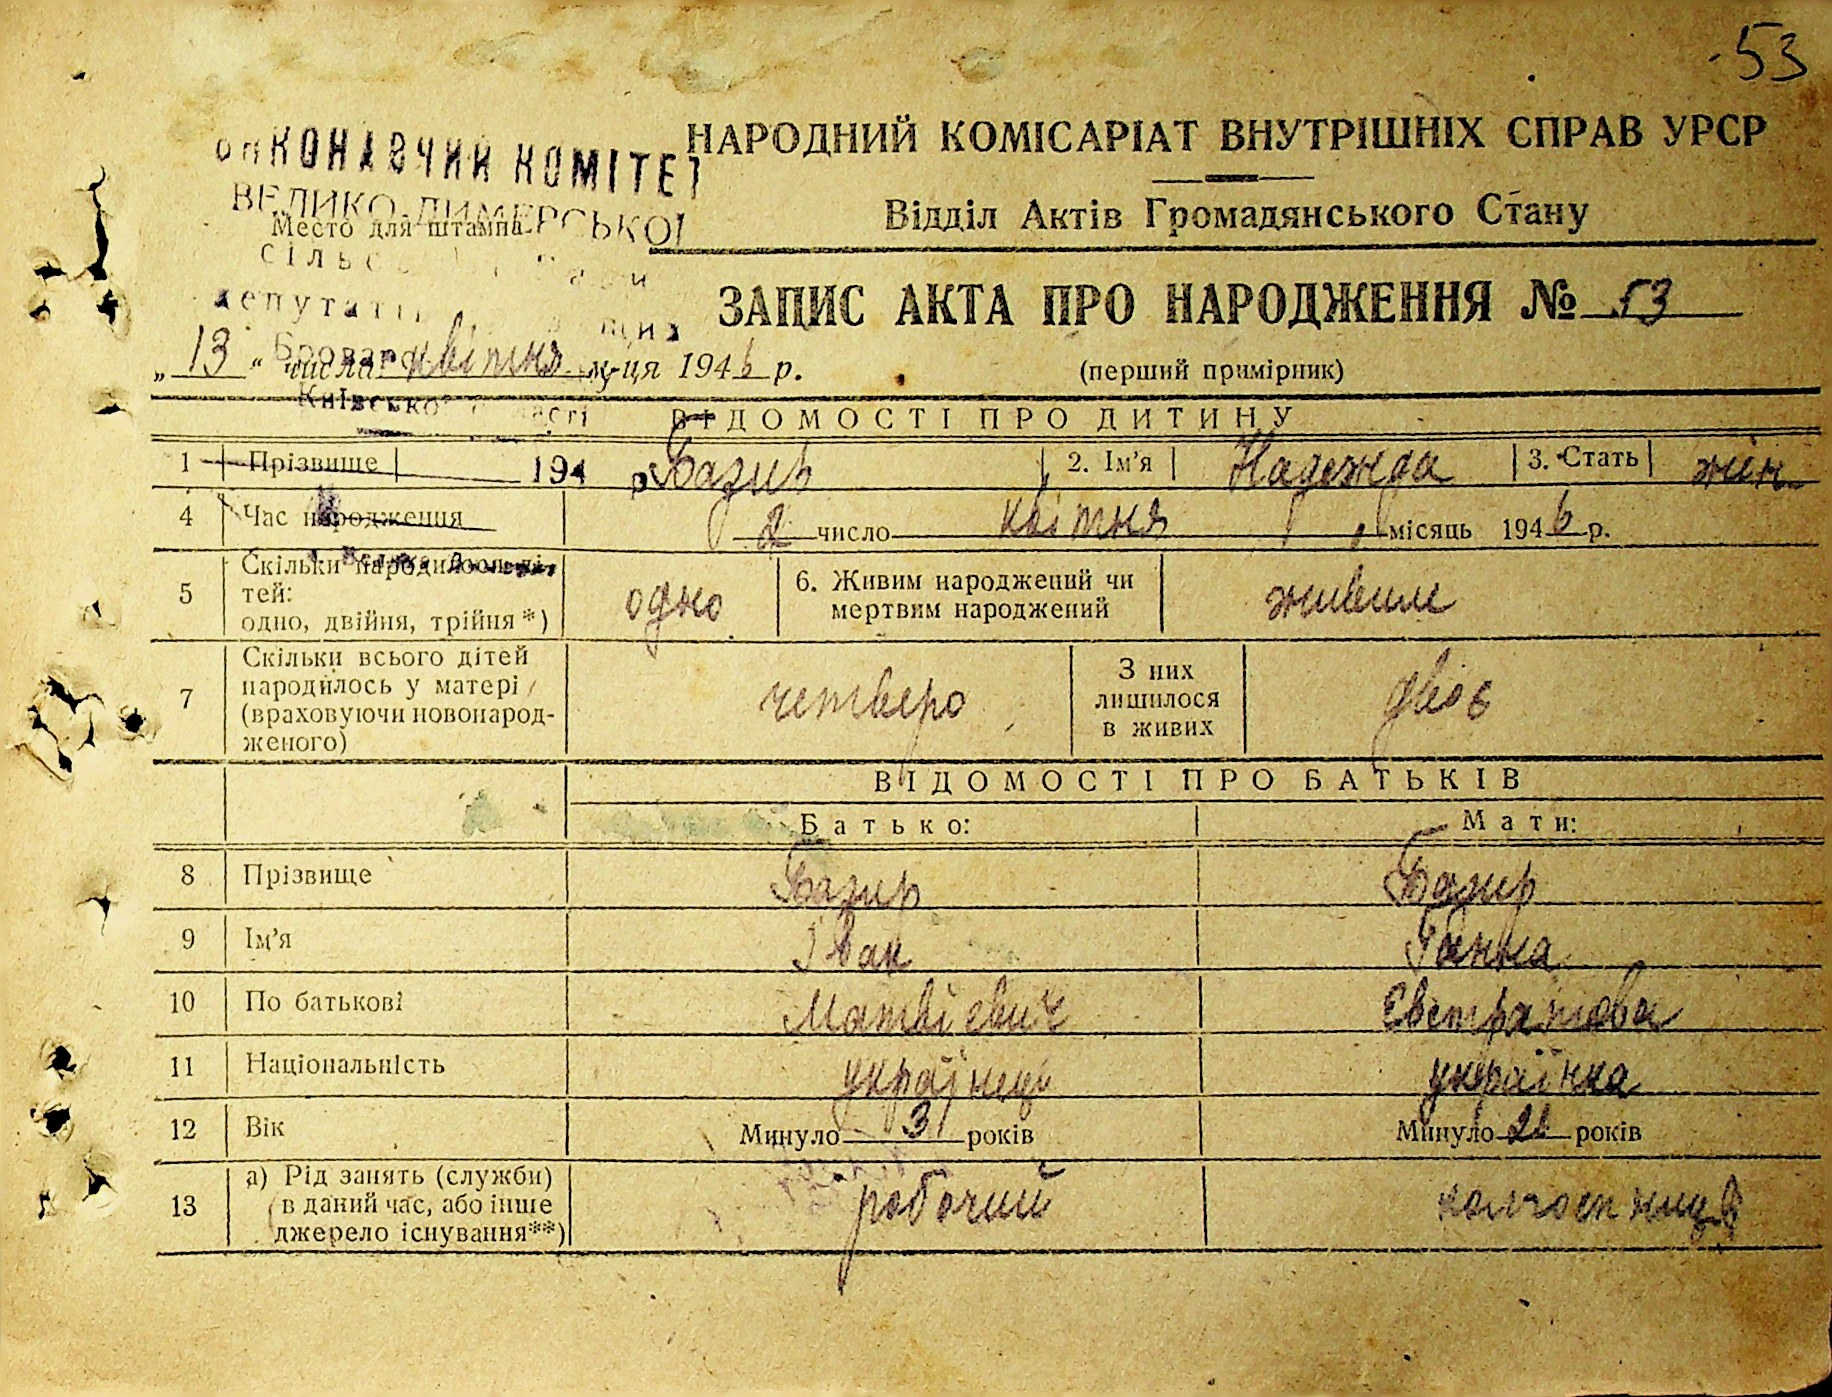 53
НАРОДНИЙ КОМІСАРІАТ ВНУТРІШНІХ СПРАВ УРСР
КОНАВЧИЙ КОМІТЕТ
ВЕЛИКО-ДИМЕРСЬКОЇ
Место для штампа
Відділ Актів Громадянського Стану
ЗАПИС АКТА ПРО НАРОДЖЕННЯ № 53
„13“ числа квітня м-ця 1946 р.
(перший примірник)
ВІДОМОСТІ ПРО ДИТИНУ
1 Прізвище 194 р Базир 2. Ім’я Надежда 3. Стать жін
4 Час народження 2 число квітня місяць 1946 р.
5 Скільки народилося ді-
тей:
одно, двійня, трійня*) одно 6. Живим народжений чи
мертвим народжений живим
7 Скільки всього дітей
народилось у матері
(враховуючи новонарод-
женого) четверо З них
лишилося
в живих двоє
ВІДОМОСТІ ПРО БАТЬКІВ
Батько: Мати:
8 Прізвище Базир Базир
9 Ім’я Іван Ганна
10 По батькові Матвієвич Євстратова
11 Національність українець українка
12 Вік Минуло 3 років Минуло років
13 а) Рід занять (служби)
в даний час, або інше
джерело існування**) робочий колгоспниця